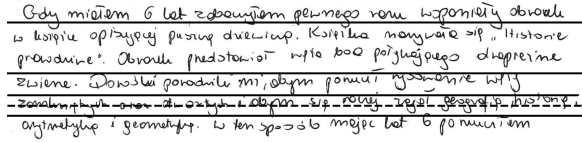 Gdy miałem 6 lat, zobaczyłem pewnego razu wspaniały obrazek
w książce opisującej puszczę dziewiczą. Książka nazywała się „Historie
prawdziwe". Obrazek przedstawiał węża boa połykającego drapieżne
zwierzę. Dorośli poradzili mi, abym porzucił rysowanie węży
zamkniętych oraz otwartych i abym się raczej zajął geografią, historią,
arytmetyką i geometrią. W ten sposób mając lat 6 porzuciłem